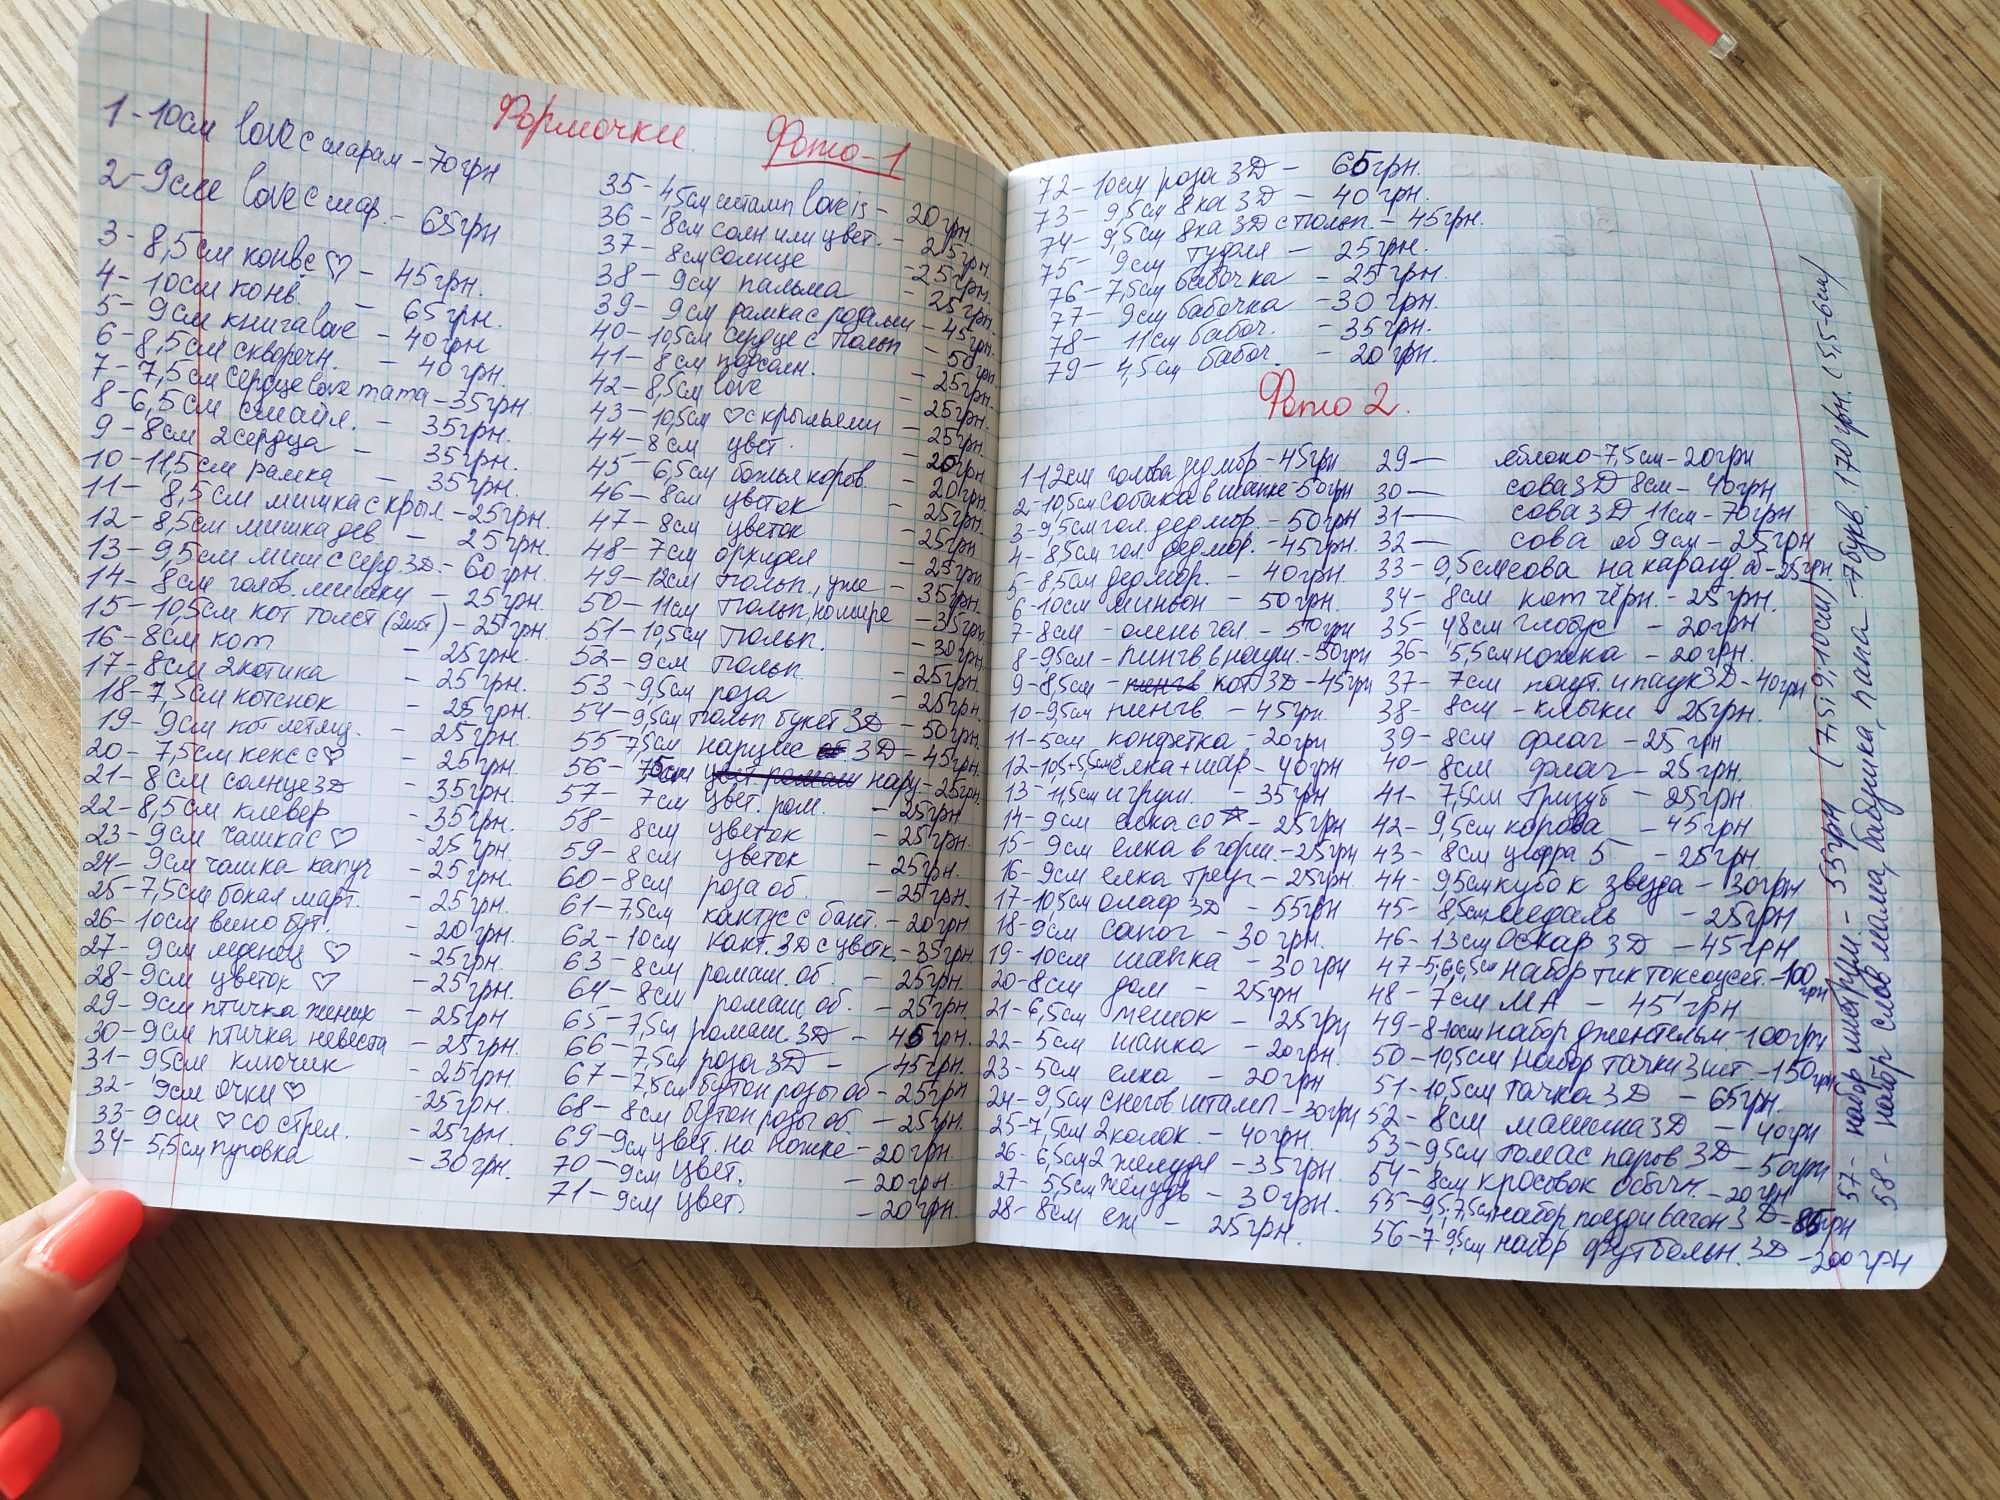 Формочки. Фото-1
1-10см love с шарам -70грн
2-9см love с шар. - 65грн
3- 8,5см конв с ♡ - 45грн.
4- 10см конв. - 65грн.
5- 9см книга love - 40грн
6- 8,5см скворечн. - 40грн.
7- 7,5см сердце love тата -35грн.
8- 6,5см смайл. - 35грн.
9 - 8см 2сердца - 35грн.
10- 11,5см рамка - 35грн.
11- 8,5см мишка с крыл - 25грн.
12- 8,5см мишка дев - 25грн.
13- 9,5см миш с серд 3Д - 60грн.
14- 8см голов. мишки - 25грн.
15- 10,5см кот толст (2шт) - 25грн.
16- 8см кот - 25грн.
17- 8см 2котика - 25грн.
18- 7,5см котенок - 25грн.
19- 9см кот летящ. - 25грн.
20- 7,5см кекс с ♡ - 25грн.
21- 8см солнце 3Д - 35грн.
22- 8,5см клевер - 35грн.
23- 9см чашка с ♡ - 25грн.
24- 9см чашка капуч - 25грн.
25- 7,5см бокал март. - 25грн.
26- 10см вино бут. - 20грн.
27- 9см леденец ♡ - 25грн.
28- 9см цветок ♡ - 25грн.
29- 9см птичка жених - 25грн
30- 9см птичка невеста - 25грн.
31- 9,5см ключик - 25грн.
32- 9см очки ♡ - 25грн.
33- 9см ♡ со стрел. - 25грн.
34- 5,5см пуговка - 30грн.
35- 4,5см штамп love is - 20грн
36- 8см солн или цвет. - 25грн.
37- 8см солнце - 25грн.
38- 9см пальма - 25грн.
39- 9см рамка с розами - 45грн.
40- 10,5см сердце с тюльп - 50грн
41- 8см подсолн. - 25грн.
42- 8,5см love - 25грн.
43- 10,5см ♡ с крыльями - 25грн.
44- 8см цвет. - 20грн.
45- 6,5см божья коров. - 20грн.
46- 8см цветок - 25грн.
47- 8см цветок - 25грн
48- 7см орхидея - 25грн.
49- 12см тюльп., уже - 35грн.
50- 11см тюльп, но шире - 35грн.
51- 10,5см тюльп. - 30грн.
52- 9см тюльп. - 25грн.
53- 9,5см роза - 25грн.
54- 9,5см тюльп букет 3Д - 50грн.
55- 7,5см нарцисс 3Д - 45грн.
56- 7,5см нарц. - 25грн.
57- 7см цвет. ром. - 25грн
58- 8см цветок - 25грн.
59- 8см цветок - 25грн.
60- 8см роза об. - 25грн.
61- 7,5см кактус с бант. - 20грн.
62- 10см какт. 3Д с цветк. - 35грн.
63- 8см ромаш. об. - 25грн.
64- 8см ромаш об. - 25грн.
65- 7,5см ромаш 3Д - 45грн.
66- 7,5см роза 3Д - 45грн.
67- 7,5см бутон розы об - 25грн
68- 8см бутон розы об. - 25грн.
69- 9см цвет. на ножке - 20грн.
70- 9см цвет. - 20грн.
71- 9см цвет. - 20грн.
72- 10см роза 3Д - 65грн.
73- 9,5см 8ка 3Д - 40грн.
74- 9,5см 8ка 3Д с тюльп. - 45грн.
75- 9см туфля - 25грн.
76- 7,5см бабочка - 25грн.
77- 9см бабочка - 30грн.
78- 11см бабоч. - 35грн.
79- 4,5см бабоч. - 20грн.
Фото 2.
1-12см голова дед мор. - 45грн
2-10,5см собака в шапке - 50грн
3-9,5см гол. дед мор. - 50грн
4- 8,5см гол. дед мор. - 45грн.
5- 8,5см дед мор. - 40грн.
6- 10см миньон - 50грн.
7- 8см - олень гол. - 50грн
8- 9,5см - пингв. в науш. - 50грн
9- 8,5см - пингв. кот 3Д - 45грн
10- 9,5см пингв. - 45грн.
11- 5см конфетка - 20грн
12- 10,5+5,5см елка + шар - 40грн
13- 11,5см игруш. - 35грн
14- 9см елка со ☆ - 25грн
15- 9см елка в горш. - 25грн
16- 9см елка треуг - 25грн.
17- 10,5см олаф 3Д - 55грн
18- 9см сапог - 30грн.
19- 10см шапка - 30грн
20- 8см дом - 25грн
21- 6,5см мешок - 25грн
22- 5см шапка - 20грн.
23- 5см елка - 20грн
24- 9,5см снегов штамп - 30грн
25- 7,5см 2колок. - 40грн.
26- 6,5см 2 желудя - 35грн.
27- 5,5см желудь - 30грн.
28- 8см еж - 25грн.
29 — яблоко - 7,5см - 20грн
30 — сова 3Д 8см - 40грн
31 — сова 3Д 11см - 70грн
32 — сова об 9см - 25грн
33- 9,5см сова на каранд. об - 25грн.
34- 8см кот чёрн. - 25грн.
35- 4,8см глобус - 20грн
36- 5,5см ножка - 20грн.
37- 7см паут. и паук 3Д - 40грн
38- 8см - клыки - 25грн.
39- 8см флаг - 25грн
40- 8см флаг - 25грн.
41- 7,5см тризуб - 25грн
42- 9,5см корова - 45грн
43- 8см цифра 5 - 25грн
44- 9,5см кубок звезда - 30грн
45- 8,5см медаль - 25грн
46- 13см Оскар 3Д - 45грн
47- 5,6,6,5см набор тик ток соцсет. - 100грн
48- 7см МА - 45грн
49- 8-10см набор джентельм - 100грн
50- 10,5см набор тачки 3шт - 150грн
51- 10,5см тачка 3Д - 65грн.
52- 8см машина 3Д - 40грн
53- 9,5см томас паров 3Д - 50грн
54- 8см кроссовок обычн. - 20грн
55- 9,5; 7,5см набор поезд и вагон 3Д - 85грн
56- 7 9,5см набор футбольн. 3Д - 200грн
57- набор цифры. - 55грн (7,5; 9, 10см)
58- набор слов мама, бабушка, папа - 7букв. 170грн. (5,5-6см)